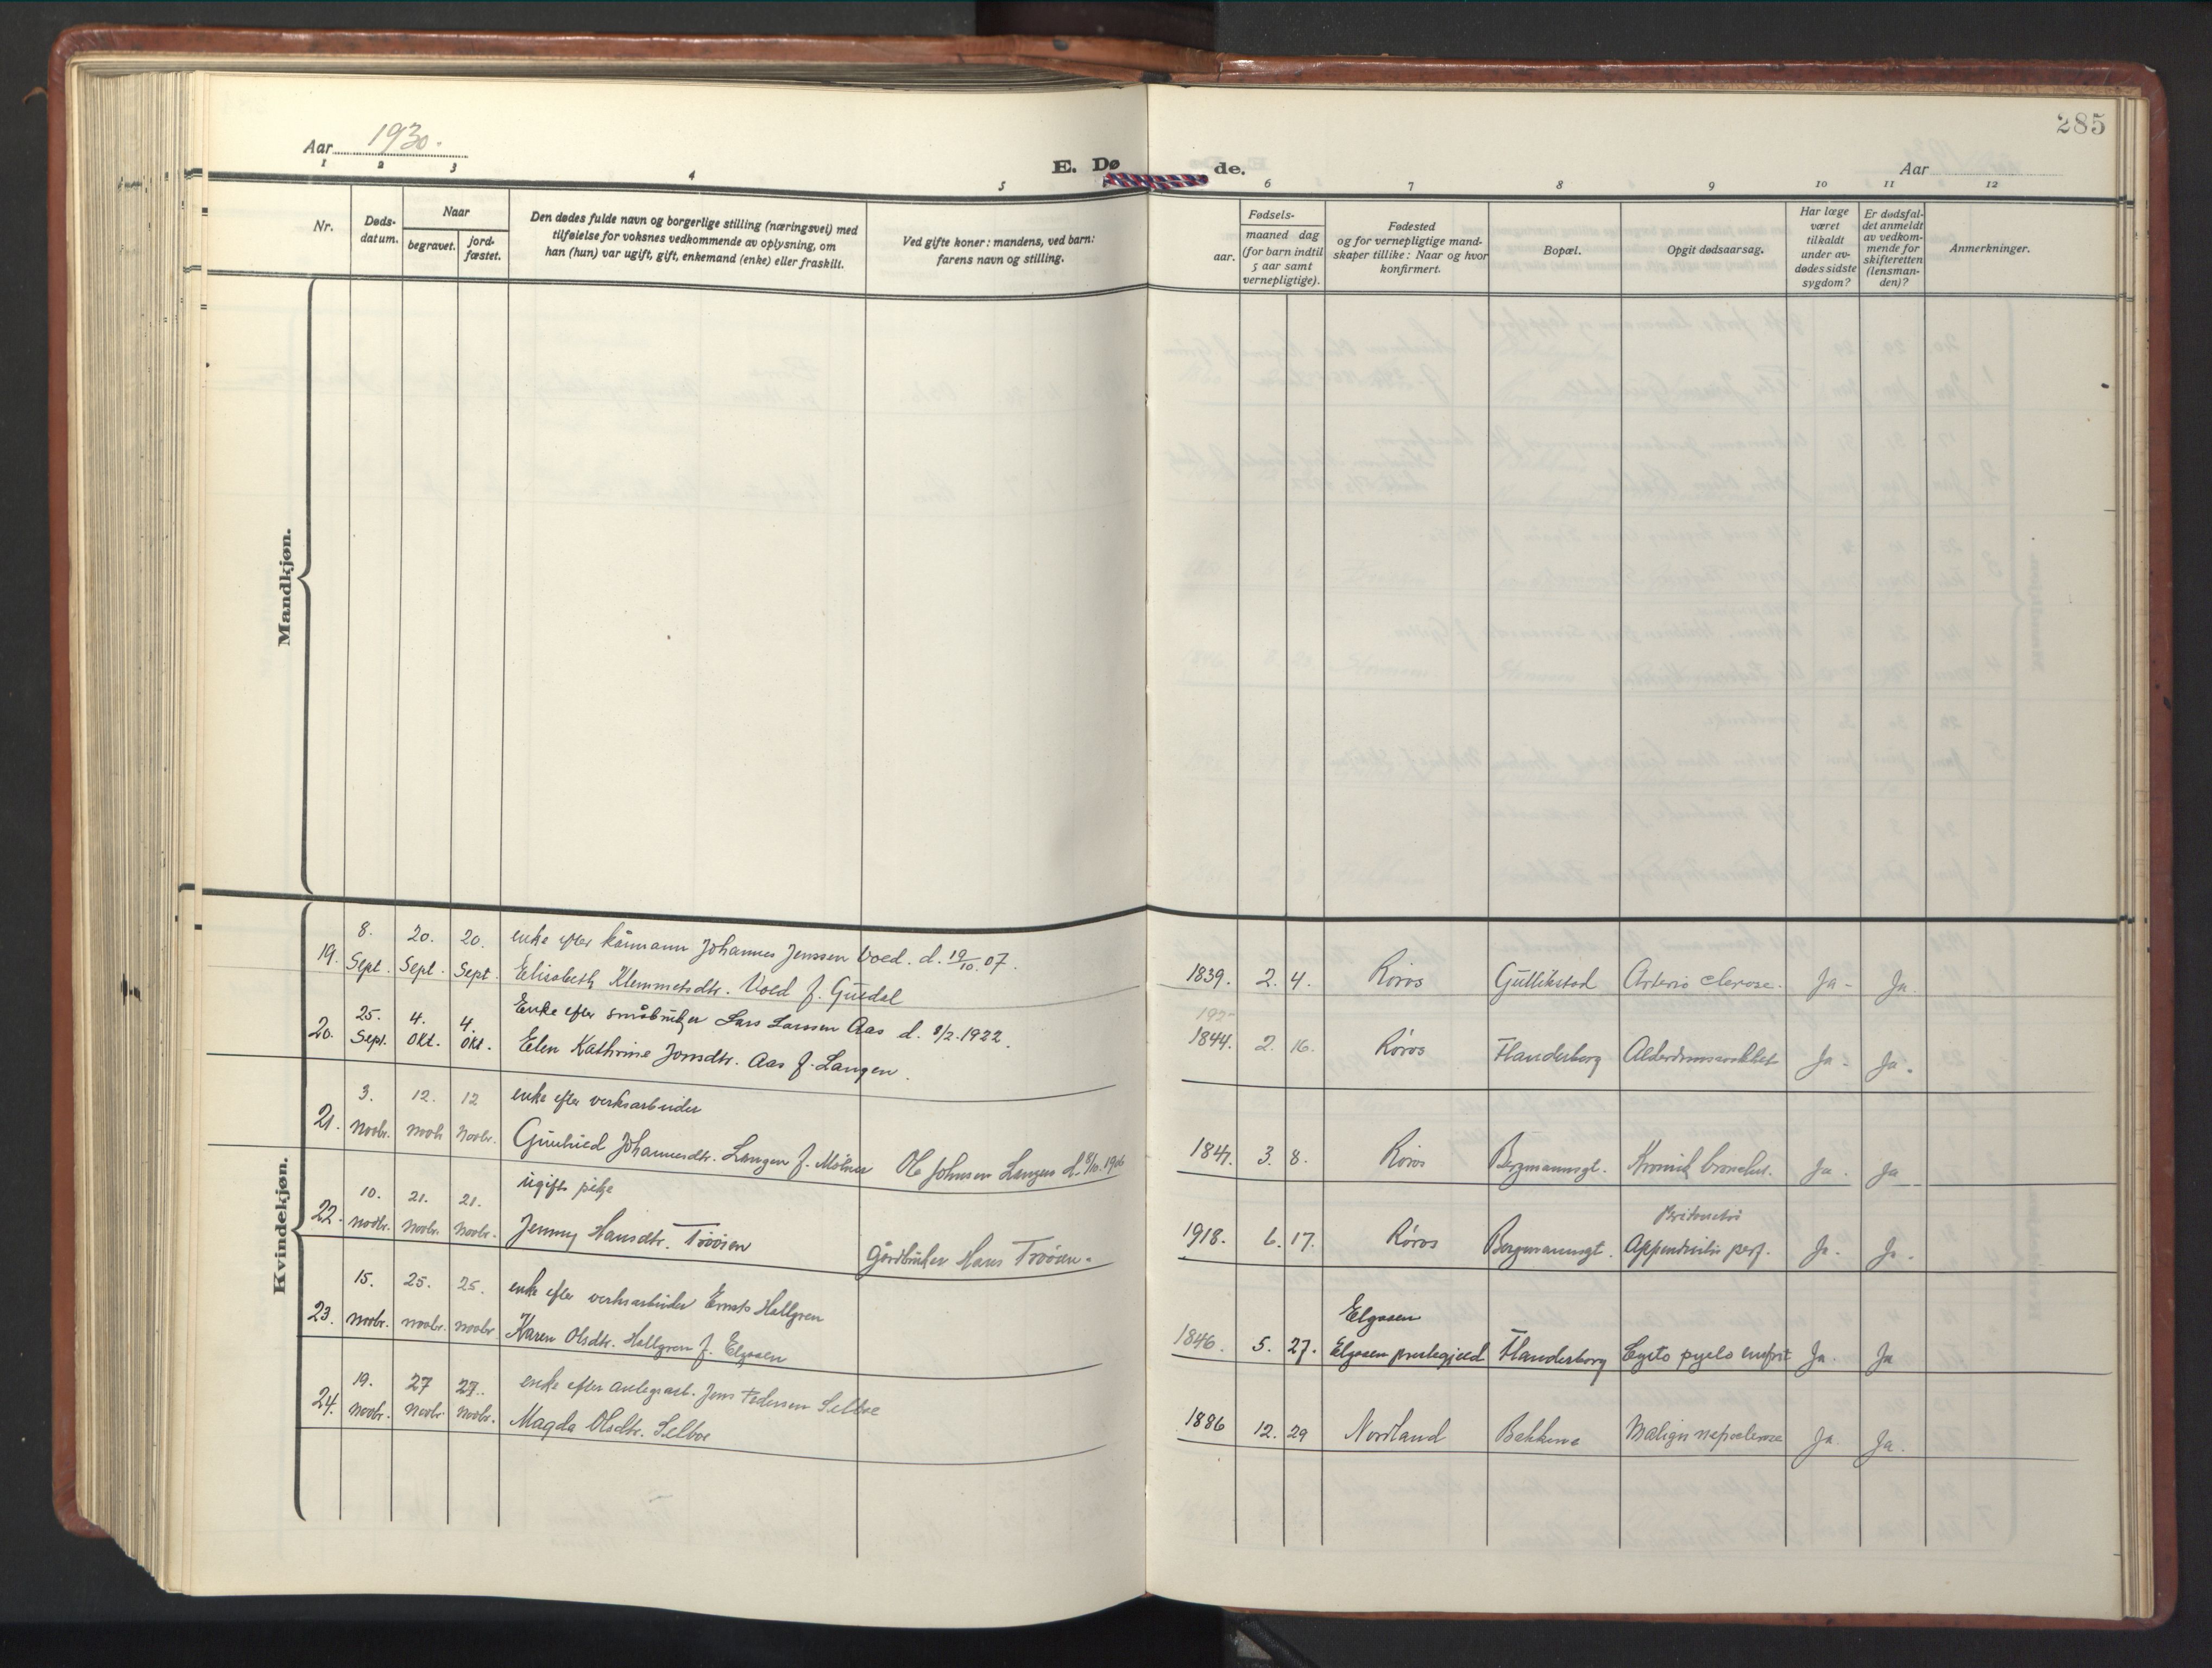 285
Aar 1930.
E. Dø de.
Aar
1 2 3 4 5 6 7 8 9 10 11 12
Nr.
Døds-
datum.
Naar
begravet.
jord-
fæstet.
Den dødes fulde navn og borgerlige stilling (næringsvei) med
tilføielse for voksnes vedkommende av oplysning, om
han (hun) var ugift, gift, enkemand (enke) eller fraskilt.
Ved gifte koner: mandens, ved barn:
farens navn og stilling.
Fødsels-
aar.
maaned dag
(for barn indtil
5 aar samt
vernepligtige).
Fødested
og for vernepligtige mand-
skaper tillike: Naar og hvor
konfirmert.
Bopæl.
Opgit dødsaarsag.
Har læge
været
tilkaldt
under av-
dødes sidste
sygdom?
Er dødsfal-
det anmeldt
av vedkom-
mende for
skifteretten
(lensman-
den)?
Anmerkninger.
Mandkjøn.
Kvindekjøn.
8. 20. 20. enke efter kårmann Johannes Jenssen Voed. d. 19/10.07.
19. Sept. Sept. Sept. Elisabeth Klemmetsdtr. Voed f. Guldal 1839. 2. 4. Røros Gullikstad Arterio clerose. Ja - Ja.
25. 4. 4. Enke efter småbruker Lars Larssen Aas d. 8/2.1922.
20. Sept. Okt. Okt. Elen Kathrine Jonsdtr. Aas f. Langen. 1844. 2. 16. Røros Flanderborg Alderdomssvakhet Ja - Ja.
3. 12. 12 enke efter verksarbeider
21. Novbr. Novb Novbr. Gunhild Johannesdtr. Langen f. Mölner Ole Johnsen Langen d. 8/10.1906 1847. 3. 8. Røros Bergmannsgt. Kronisk bronchit. Ja. Ja
10. 21. 21. ugift pike Peritonitis
22. Novbr. Novbr. Novbr. Jenny Hansdtr. Trøøen Gårdbruker Hans Trøøen. 1918. 6. 17. Røros Bergmannsgt. Appendicitis perf. Ja. Ja.
15. 25. 25. enke efter verksarbeider Ernst Hallgren Elgaaen
23. Novbr. Novbr. Novbr Karen Olsdtr. Hallgren f. Elgaaen 1846. 5. 27. Elgaaen prestegjeld Flanderborg Cysto pyelo Ja. Ja
19. 27 27. enke efter anlegsarb. Jens Pedersen Selboe
24. Novbr. Novbr. Novbr. Magda Olsdtr. Selboe 1886 12. 29 Nordland Bakkene Malign Ja. Ja.